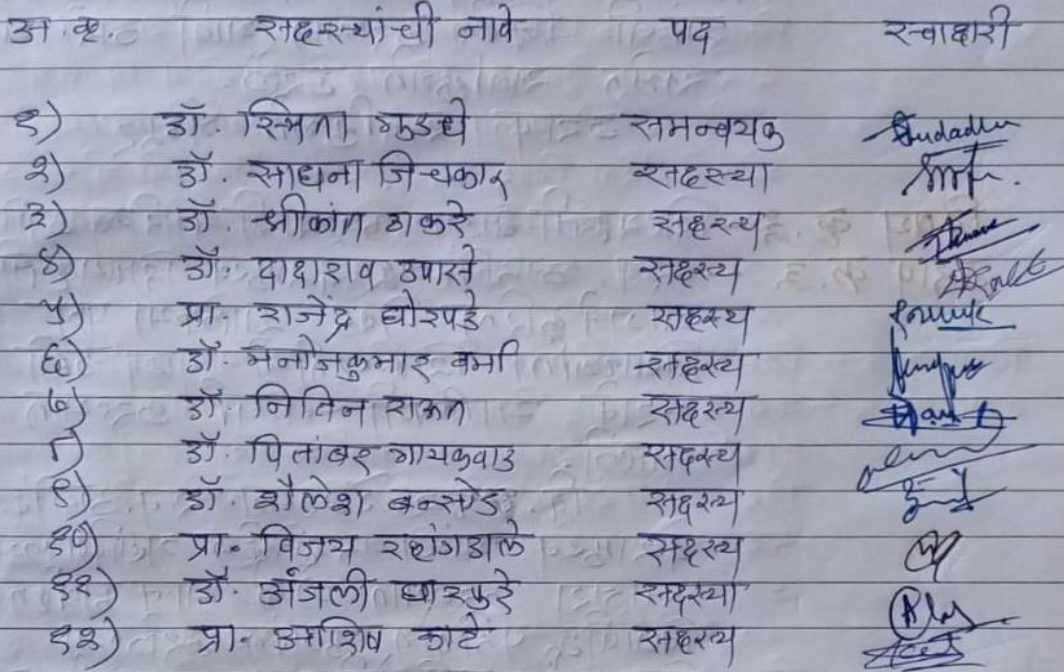 अ.क्र. सदस्यांची नावे पद स्वाक्षरी
१) डॉ. स्मिता गुडधे समन्वयक
२) डॉ. साधना जिचकार सदस्या
३) डॉ. श्रीकांत ठाकरे सदस्य
४) डॉ. दादाराव उपासे सदस्य
५) प्रा. राजेंद्र घोरपडे सदस्य
६) डॉ. मनोजकुमार वर्मा सदस्य
७) डॉ. नितिन राऊत सदस्य
८) डॉ. पितांबर गायकवाड सदस्य
९) डॉ. शैलेश बन्सोड सदस्य
१०) प्रा. विजय रहांगडाले सदस्य
११) डॉ. अंजली धारपुरे सदस्या
१२) प्रा. आशिष काटे सदस्य